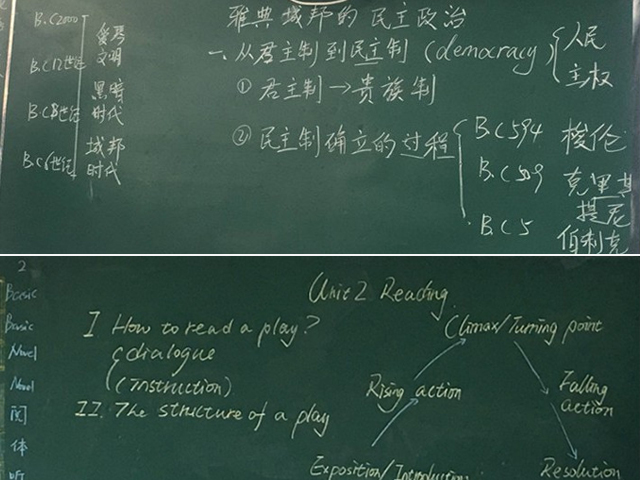 B.C2000
爱琴
文明
B.C12世纪
黑暗
时代
B.C8世纪
城邦
时代
B.C6世纪
雅典城邦的民主政治
一、从君主制到民主制 (democracy) 人民
主权
① 君主制→贵族制
② 民主制确立的过程
B.C594 梭伦
B.C509 克里斯
提尼
B.C5 伯利克
2
Basic
Basic
Novel
Novel
阅
体
听
Unit 2 Reading
I How to read a play?
dialogue
(instruction)
II. The structure of a play
Climax/Turning point
Rising action
Falling
action
Exposition/Introduction
Resolution